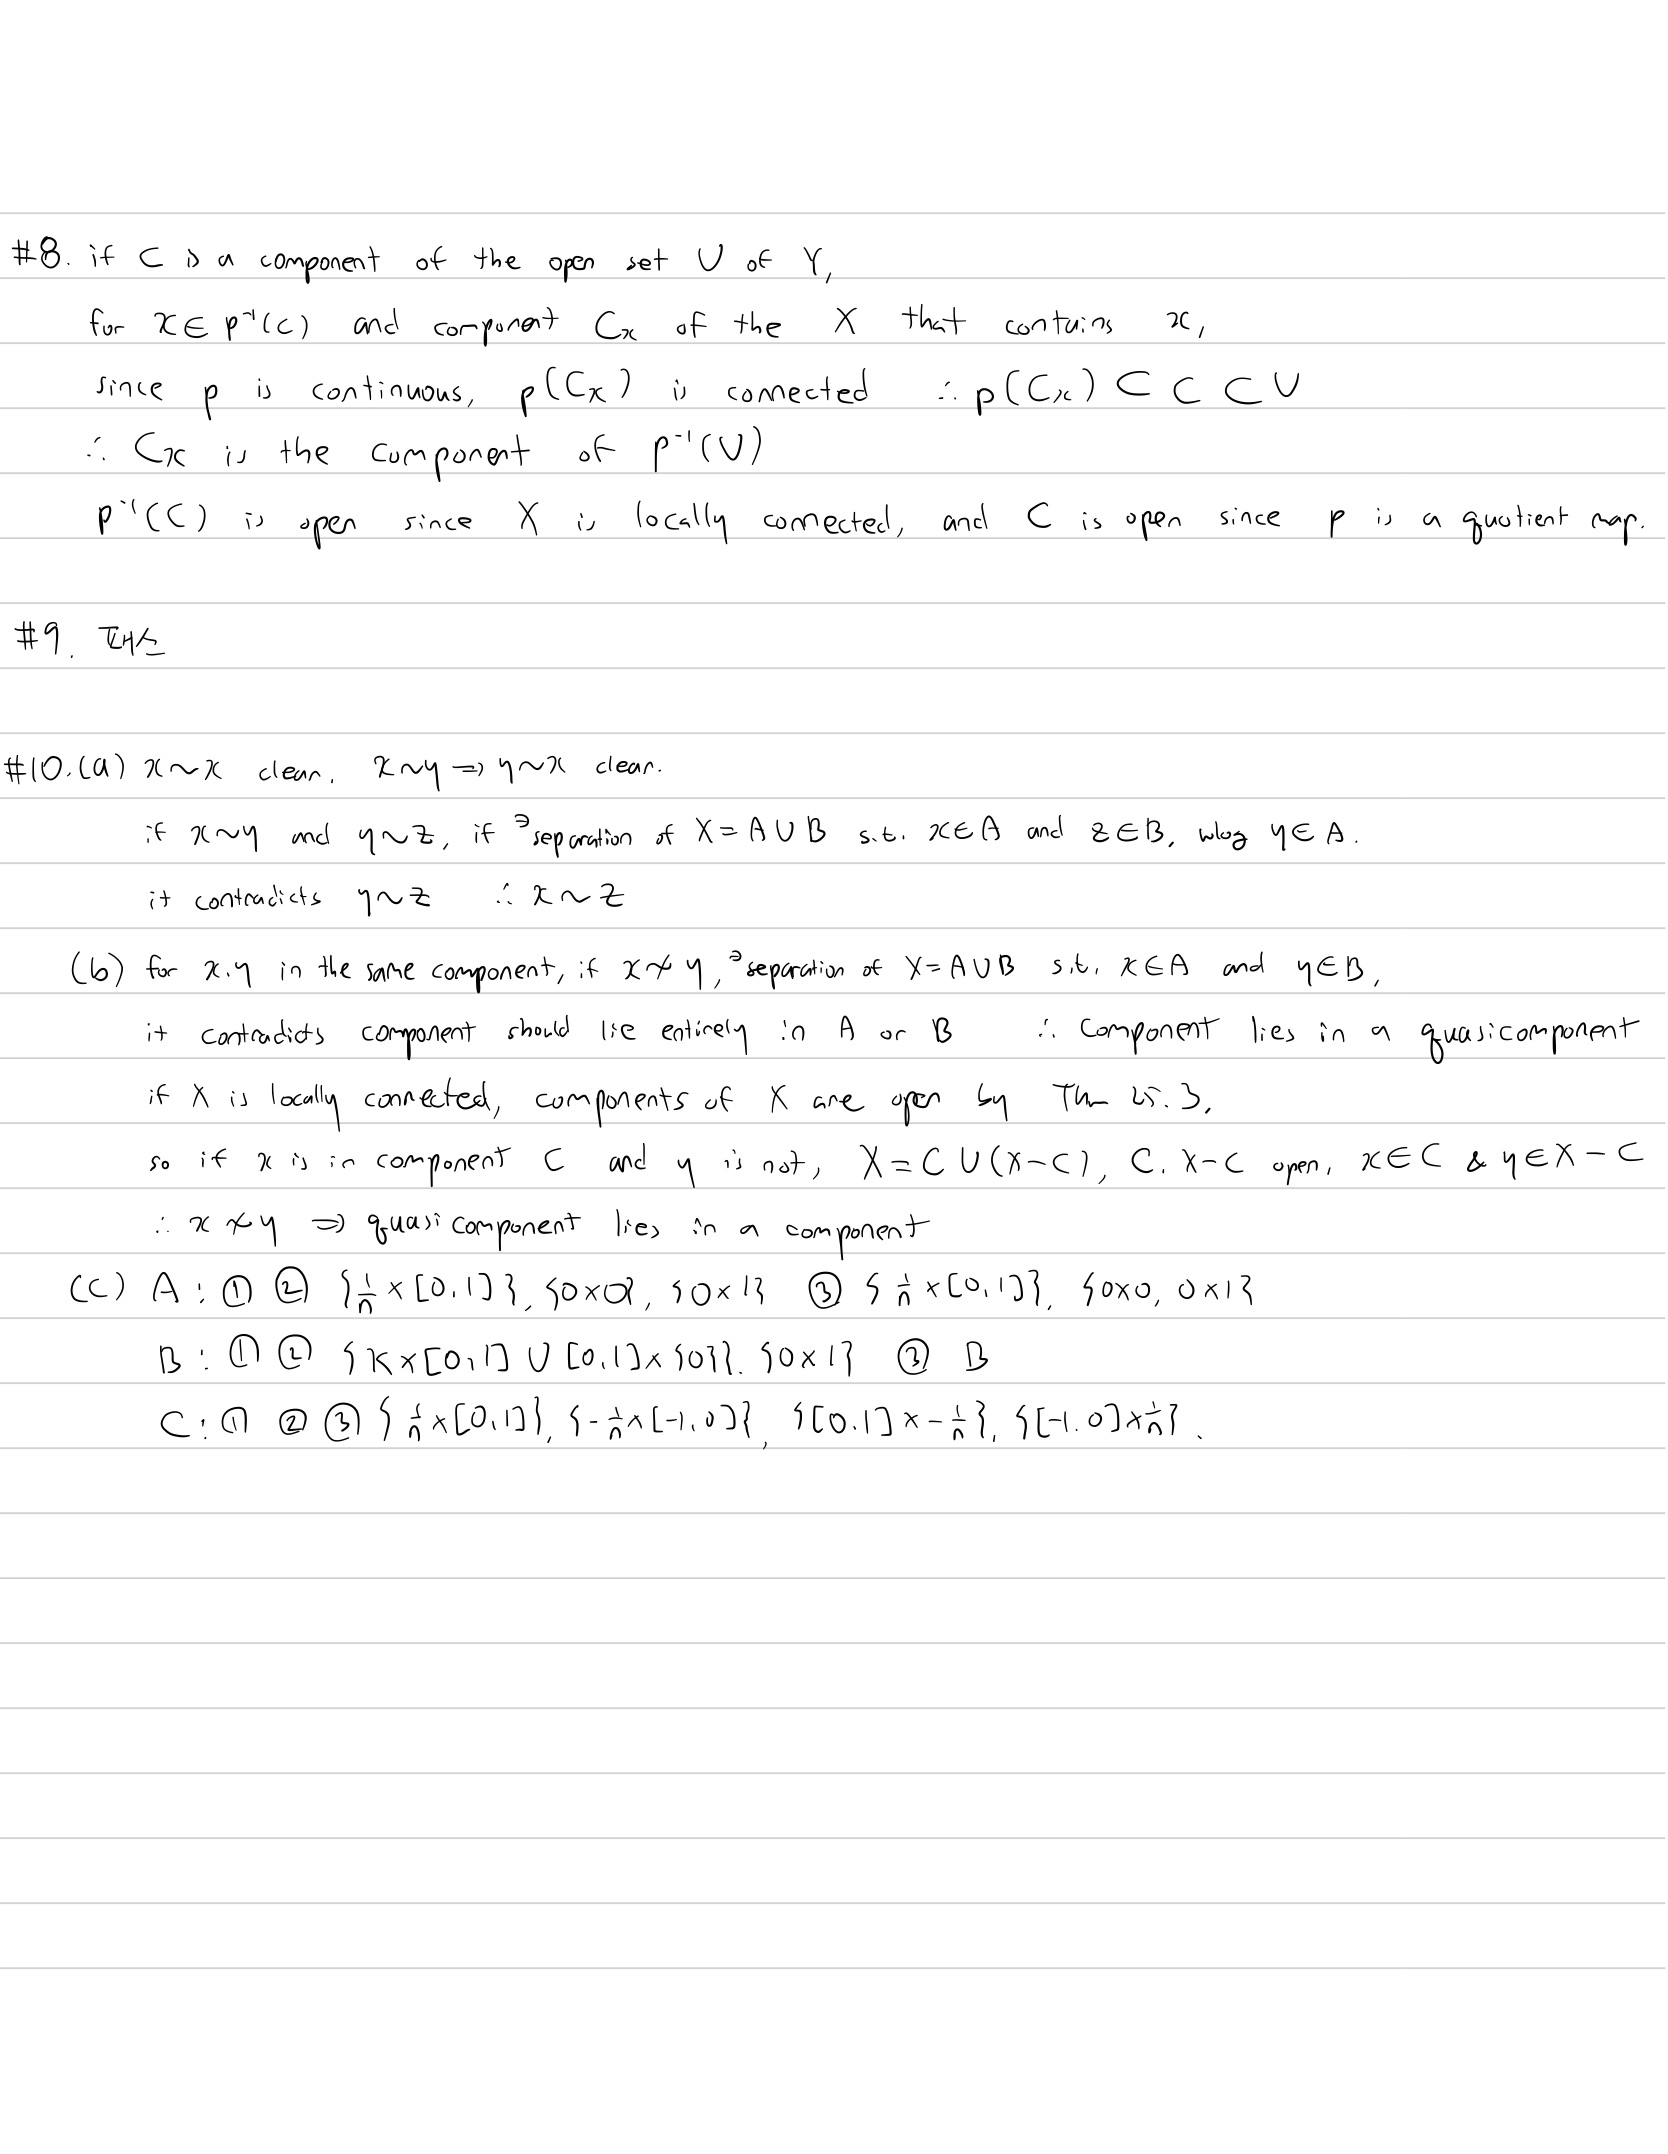 #8. if C is a component of the open set U of Y,
for x∈p⁻¹(C) and component Cx of the X that contains x,
since p is continuous, p(Cx) is connected ∴ p(Cx) ⊂ C ⊂ U
∴ Cx is the component of p⁻¹(U)
p⁻¹(C) is open since X is locally connected, and C is open since p is a quotient map.
#9. 패스
#10.(a) x~x clear. x~y ⇒ y~x clear.
if x~y and y~z, if ∃separation of X=A∪B s.t. x∈A and z∈B, wlog y∈A.
it contradicts y~z ∴ x~z
(b) for x.y in the same component, if x≁y, ∃separation of X=A∪B s.t. x∈A and y∈B,
it contradicts component should lie entirely in A or B ∴ component lies in a quasicomponent
if X is locally connected, components of X are open by Thm 25.3,
so if x is in component C and y is not, X=C∪(X-C), C. X-C open, x∈C & y∈X-C
∴ x≁y ⇒ quasicomponent lies in a component
(c) A : ① ② {1/n×[0,1]}, {0×0}, {0×1} ③ {1/n×[0,1]}, {0×0, 0×1}
B : ① ② {K×[0,1] ∪ [0,1]×{0}}. {0×1} ③ B
C : ① ② ③ {1/n×[0,1]}, {-1/n×[-1,0]}, {[0.1]×-1/n}, {[-1.0]×1/n}.